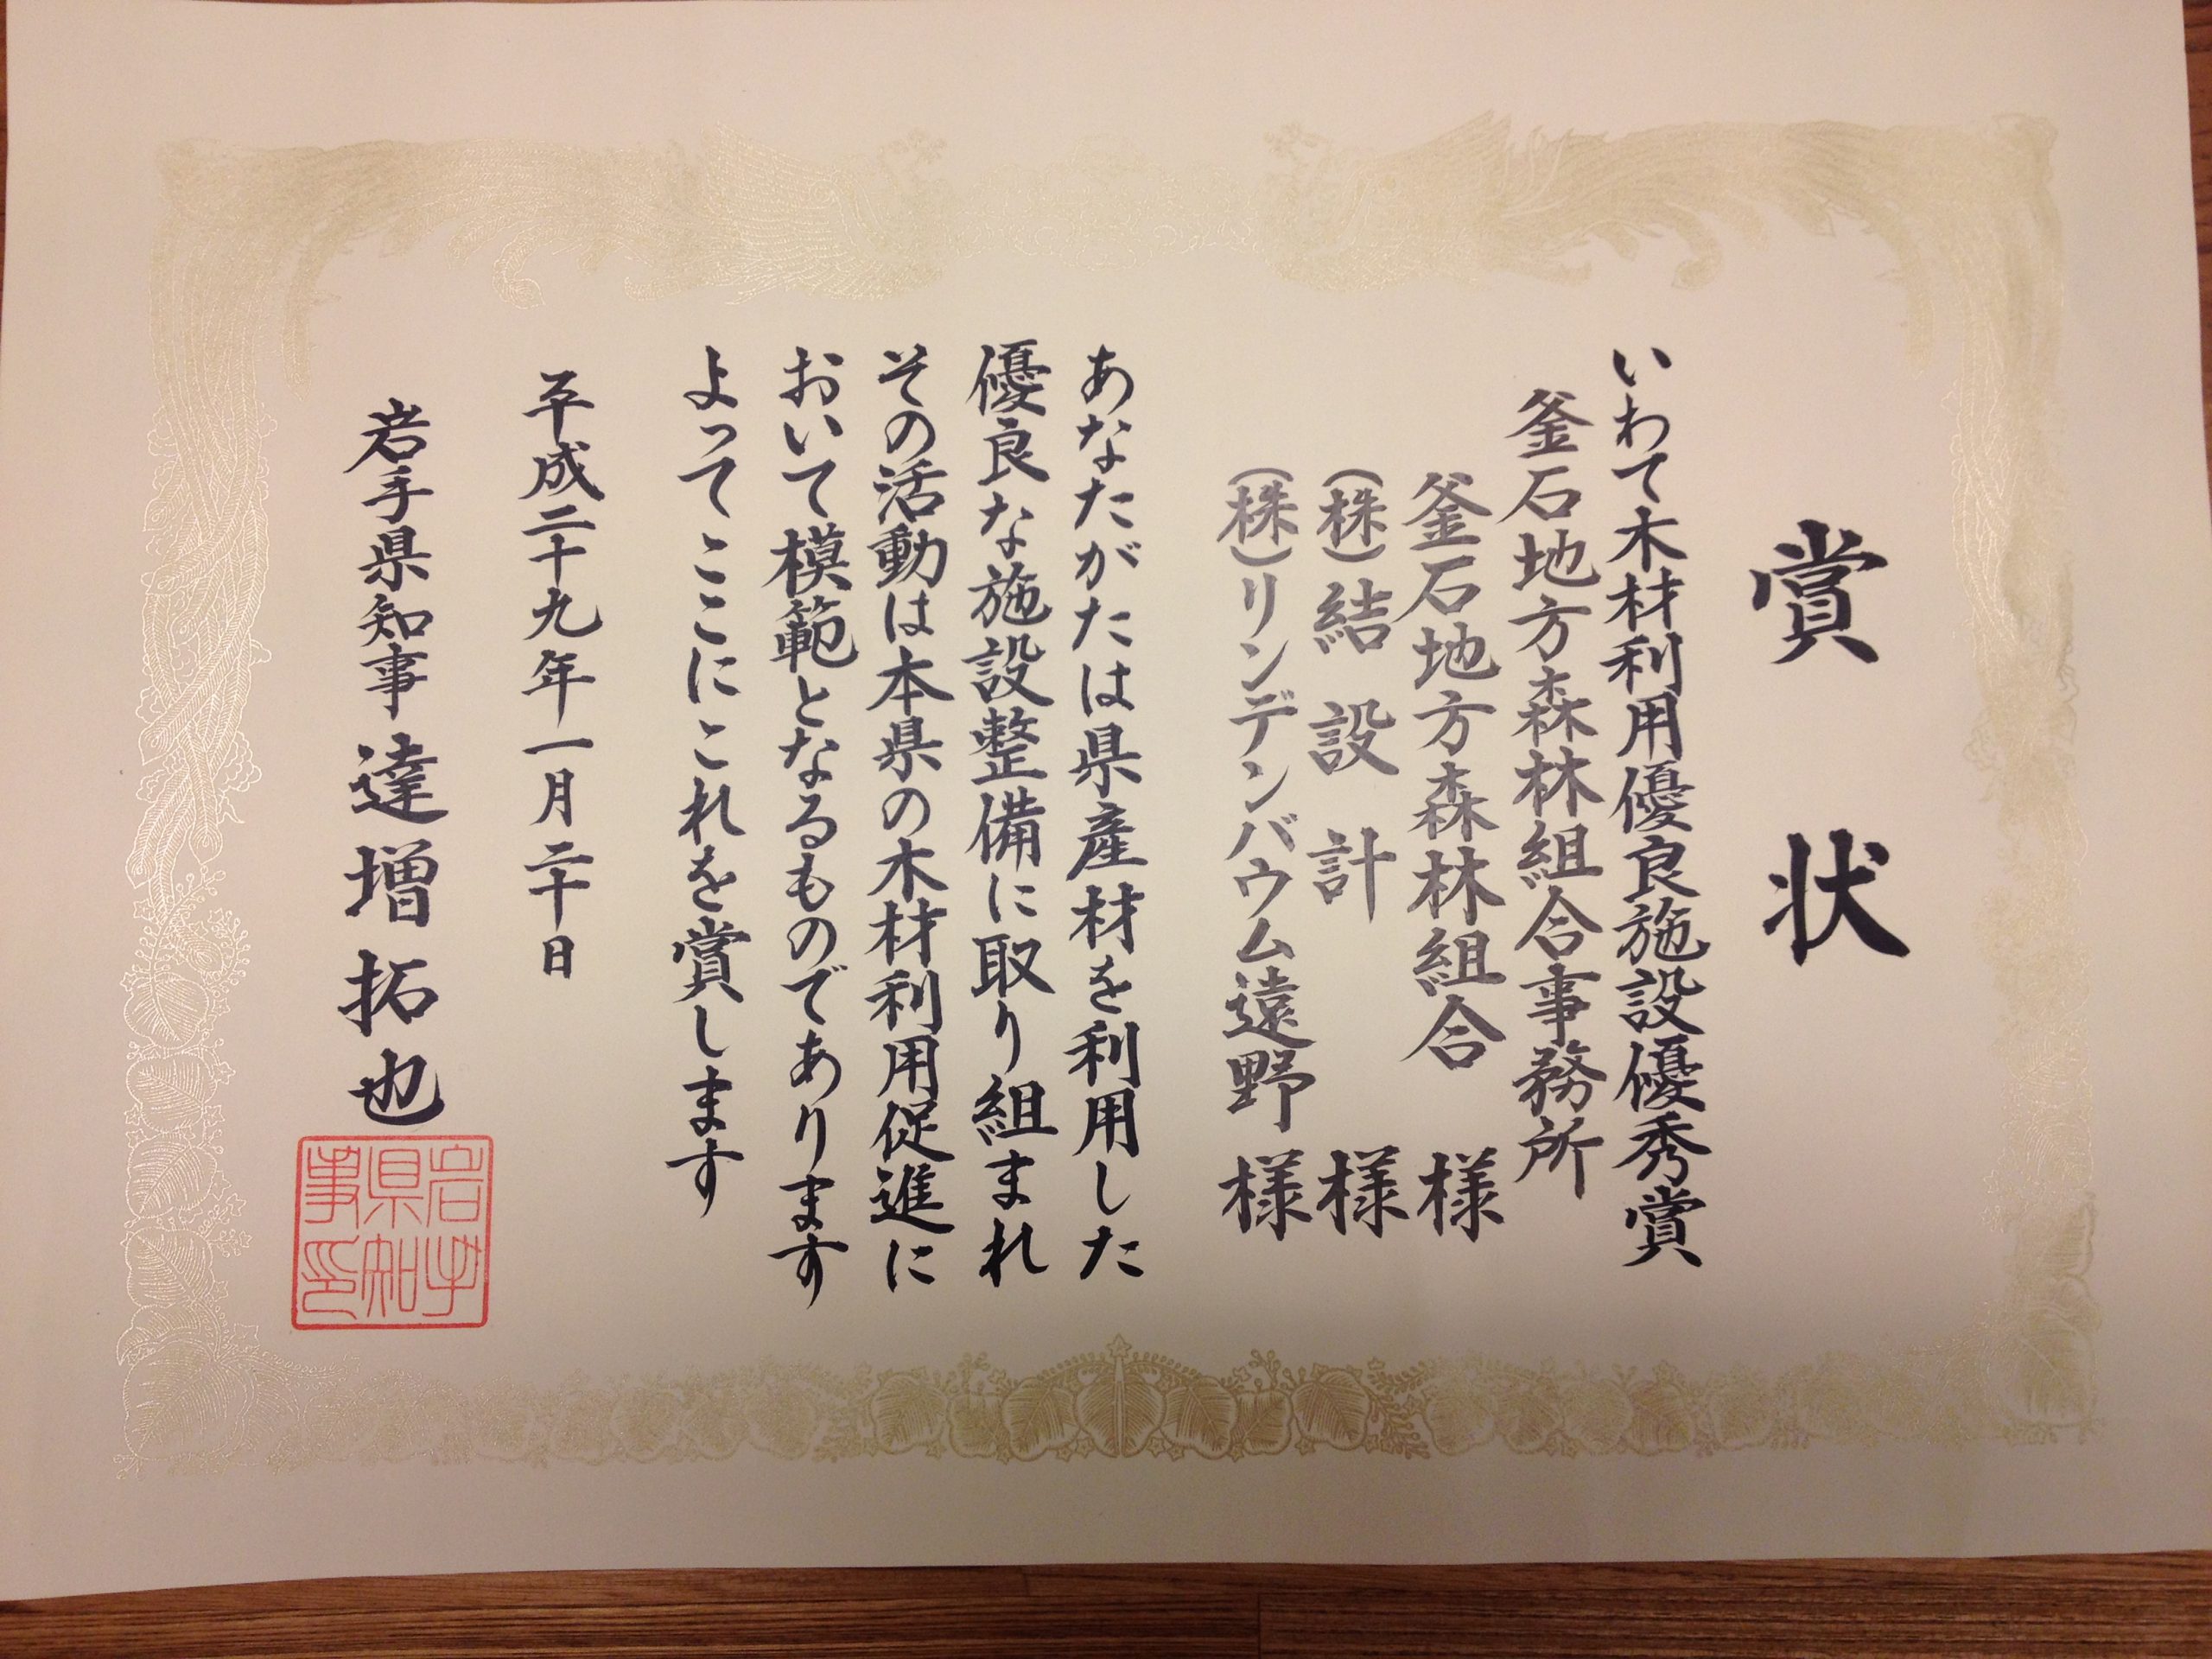 賞状
いわて木材利用優良施設優秀賞
釜石地方森林組合事務所
釜石地方森林組合 様
(株)結設計 様
(株)リンデンバウム遠野 様
あなたがたは県産材を利用した
優良な施設整備に取り組まれ
その活動は本県の木材利用促進に
おいて模範となるものであります
よってここにこれを賞します
平成二十九年一月二十日
岩手県知事 達増拓也
岩手
県知
事印